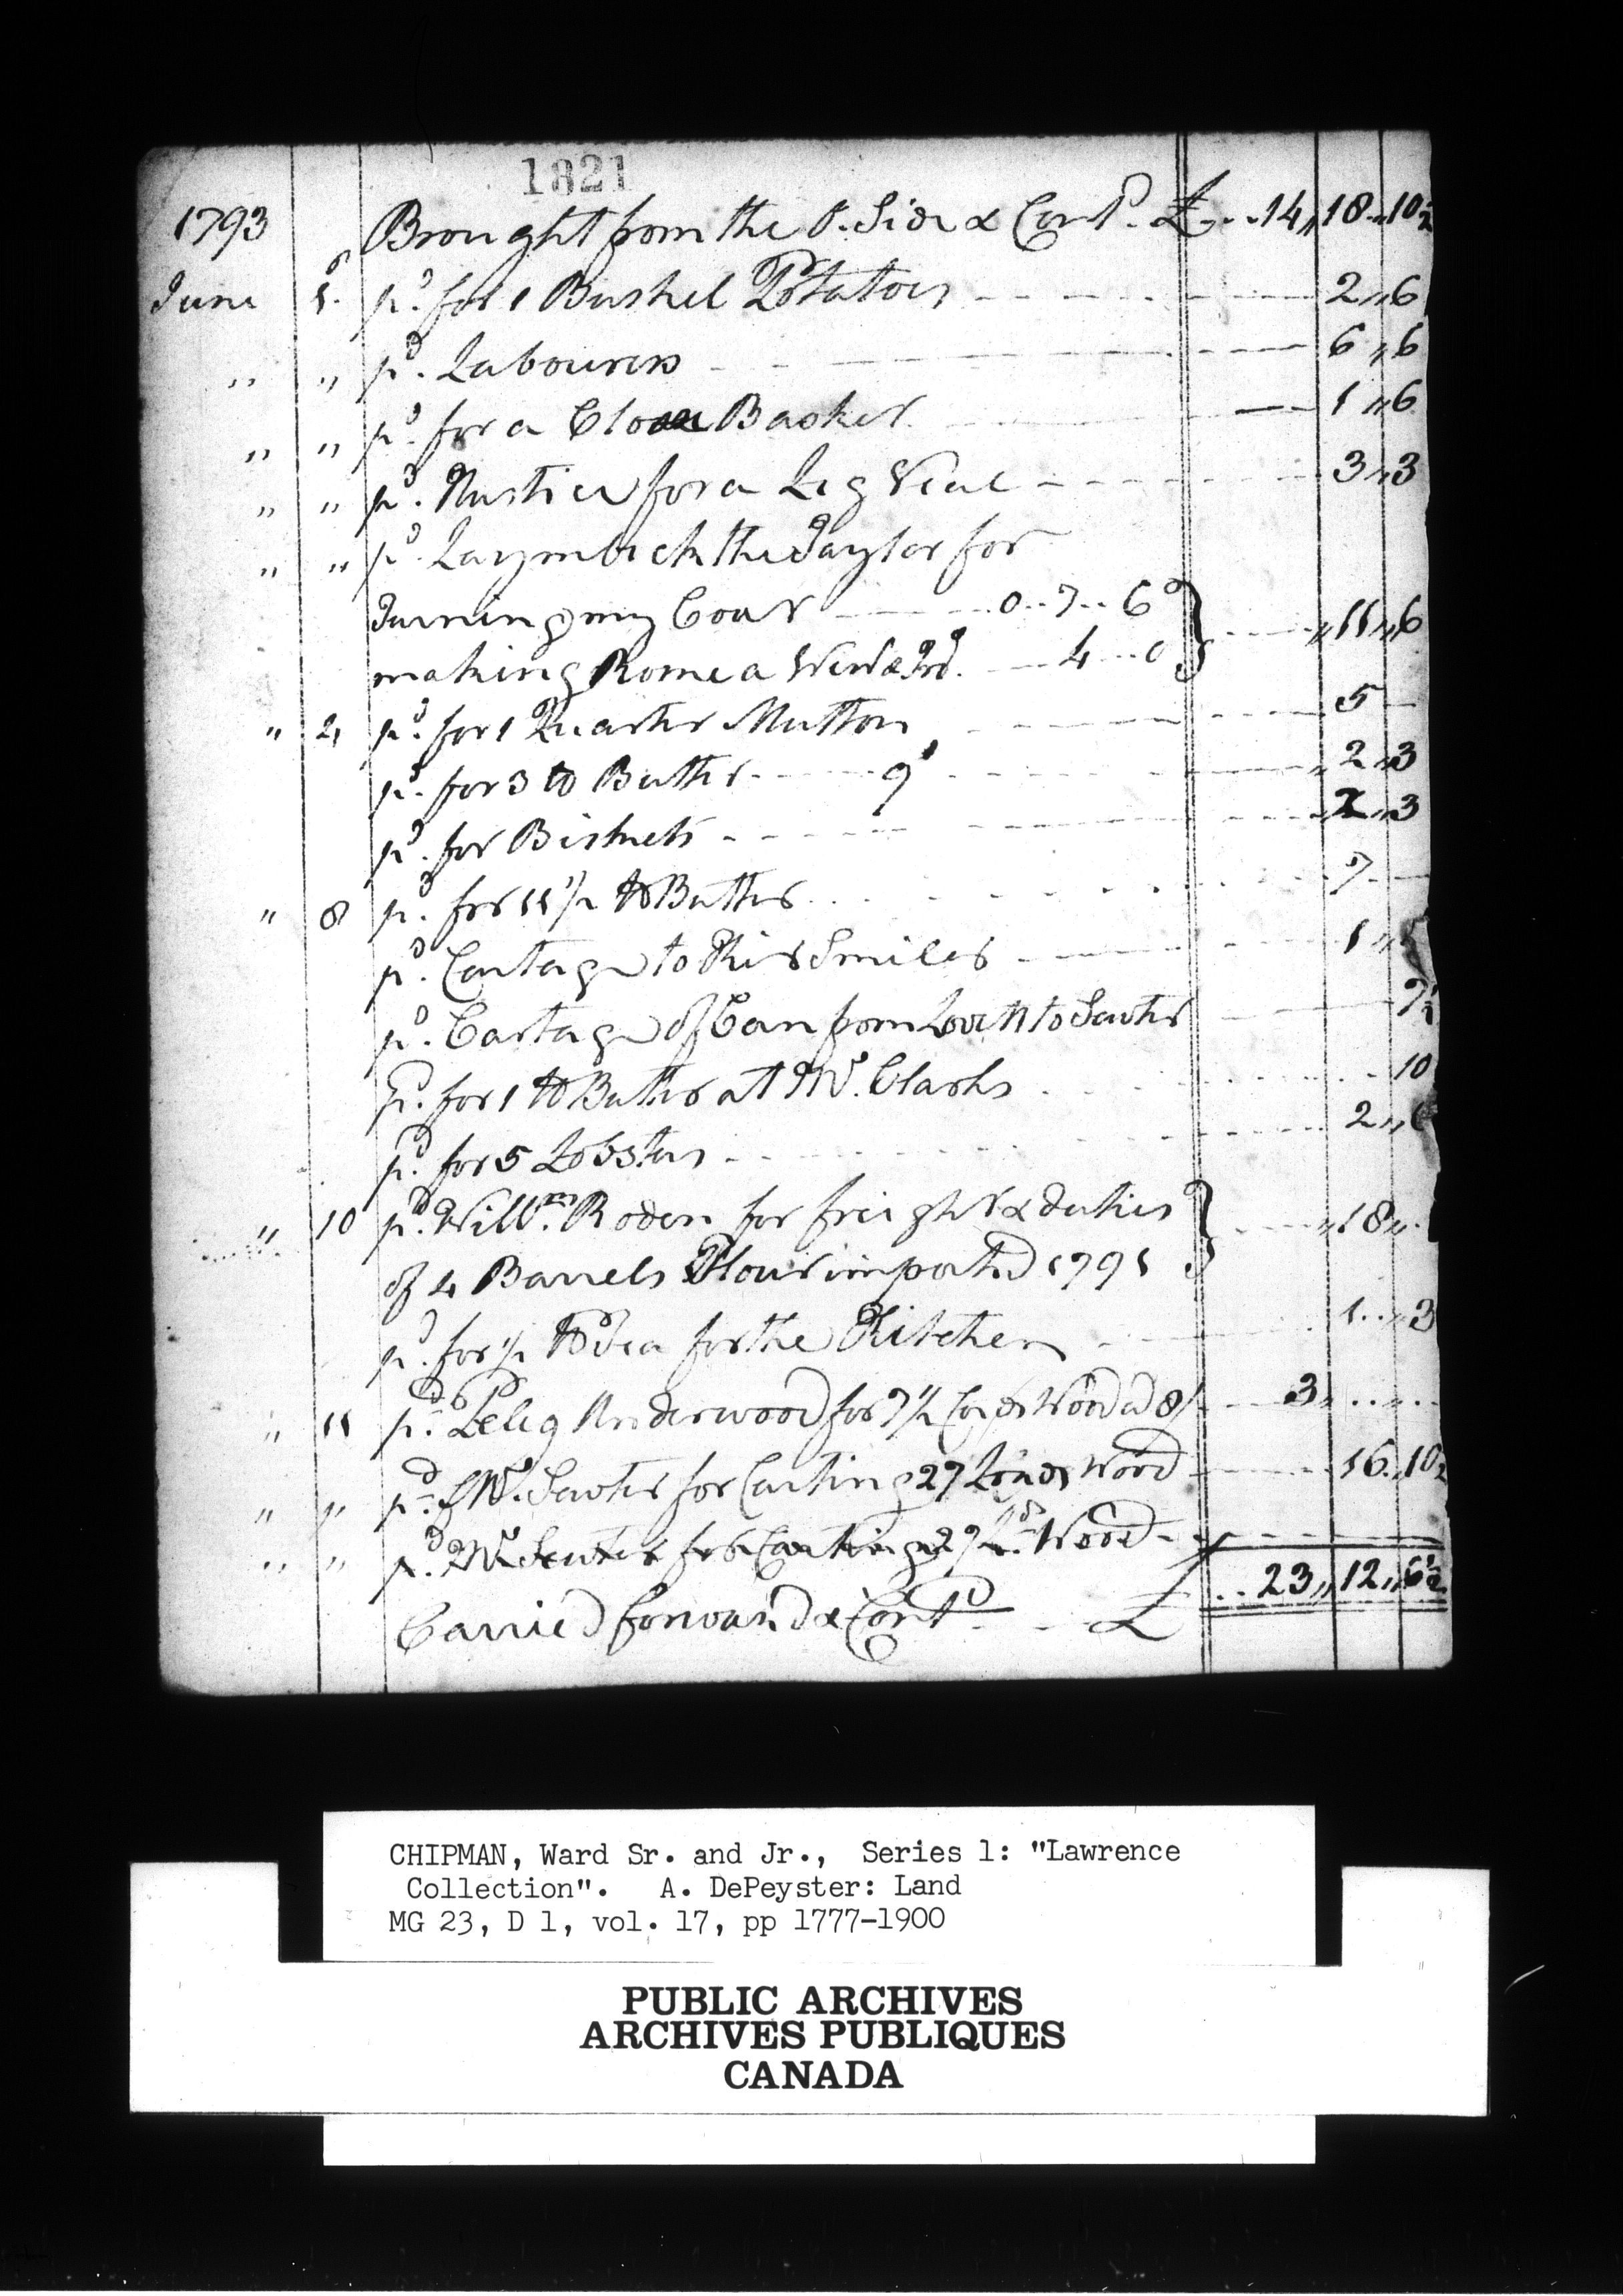 1821
1793 Brought from the O. Side & Cont.d £ 14,, 18,, 10½
June 1. p.d for 1 Bushel Potatoes 2,, 6
,, ,, p.d Labourers 6,, 6
,, ,, p.d for a Basket 1,, 6
,, ,, p.d for a Leg Veal 3,, 3
,, ,, p.d the Taylor for
Turning my Coat 0..7..6
making Rome a 4..0 } ,, 11,, 6
,, 4 p.d for 1 Quarter Mutton 5 —
p.d for 3 lb Butter 9d ,, 2,, 3
p.d for Biskuets ,, 3
,, 8 p.d for 11½ lb Butter 7 —
p.d Cartage to 1,,
p.d Cartage of from to Sauter 7½
p.d for 1 lb Butter at Mr. Clarks 10
p.d for 5 Lobsters 2,, 6
,, 10 p.d Will.m Roden for freight & duties
of 4 Barrels Flour imported 1791 } ,, 18,,
p.d for ½ lb Tea for the Kitchen 1..,, 3
,, 11 p.d Peleg Underwood for 7½ Cords Wood a 8/ 3,, ..,, ..
,, ,, p.d Mr. Sauter for Carting 27 Loads Wood 16,, 10½
,, ,, p.d Mr. Sauter for Carting 27 L.ds Wood
Carried forward & Cont.d £ 23,, 12,, 6½
CHIPMAN, Ward Sr. and Jr., Series 1: "Lawrence
Collection". A. DePeyster: Land
MG 23, D 1, vol. 17, pp 1777-1900
PUBLIC ARCHIVES
ARCHIVES PUBLIQUES
CANADA